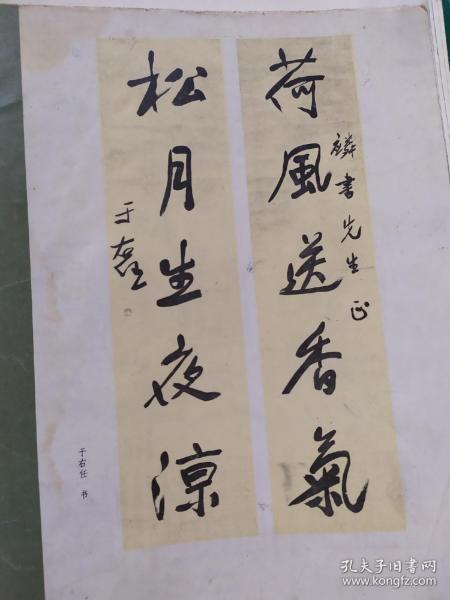 荷風送香氣
麟書先生正
松月生夜涼
于右任
于右任 书
孔夫子旧书网
www.kongfz.com